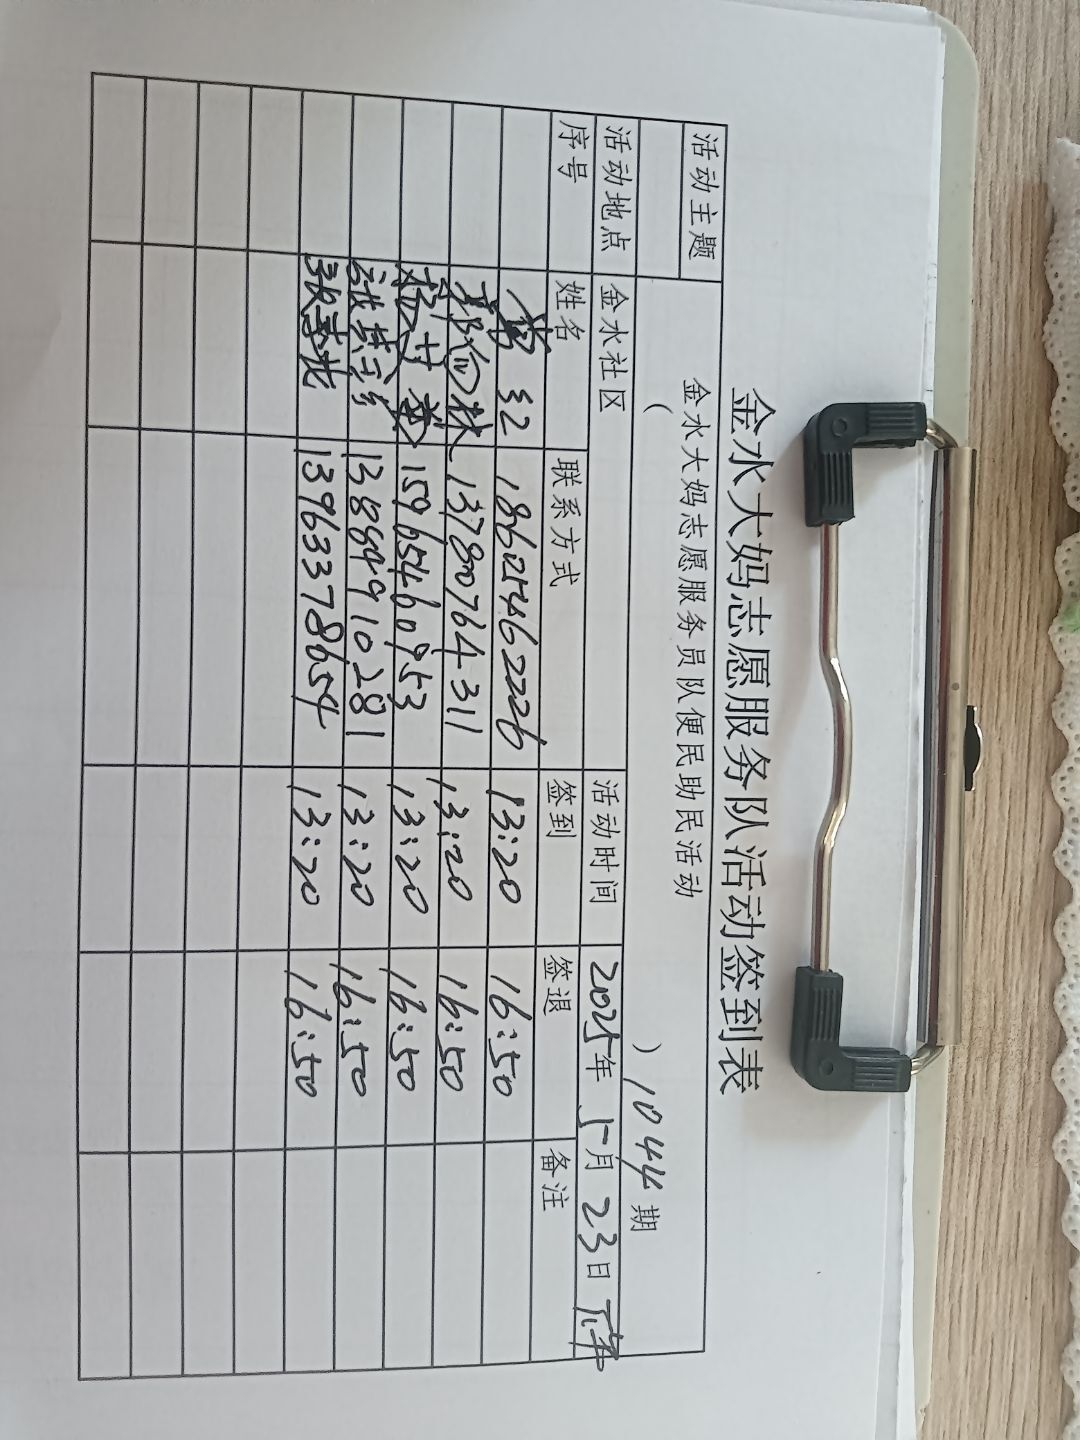 金水大妈志愿服务队活动签到表
活动主题 金水大妈志愿服务员队便民助民活动
( ) 1044期
活动地点 金水社区 活动时间 2025年5月23日下午
序号 姓名 联系方式 签到 签退 备注
18625462226 13:20 16:50
13780764311 13:20 16:50
15965460953 13:20 16:50
13884910281 13:20 16:50
13963378654 13:20 16:50